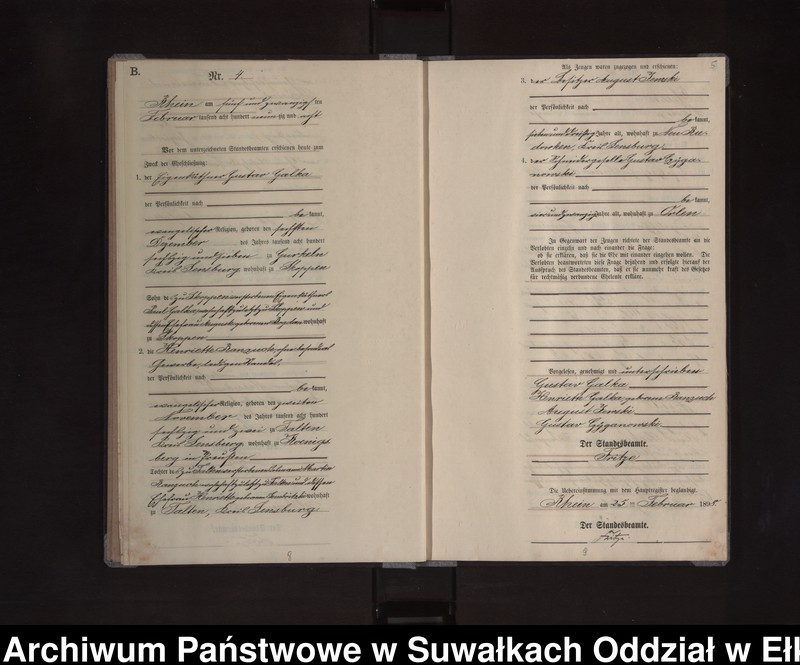 B.
Nr. 4.
Rhein am fünf und zwanzigsten
Februar tausend acht hundert neunzig und acht
Vor dem unterzeichneten Standesbeamten erschienen heute zum
Zweck der Eheschließung:
1. der Eigenkäthner Gustav Galka
der Persönlichkeit nach
be kannt,
evangelischer Religion, geboren den sechsten
Dezember des Jahres tausend acht hundert
sechszig und sieben zu Gurkeln
Kreis Sensburg wohnhaft zu Skoppen
Sohn des zu Skoppen verstorbenen Eigenkäthners
wohnhaft
zu Skoppen
2. die Henriette Ranzuch, ohne besonderes
Gewerbe, ledigen Standes,
der Persönlichkeit nach
be kannt,
evangelischer Religion, geboren den zweiten
November des Jahres tausend acht hundert
sechszig und zwei zu Talten
Kreis Sensburg wohnhaft zu Koenigs
berg in Preußen
Tochter des zu Talten verstorbenen
Ranzuch und dessen
Ehefrau Henriette geborenen wohnhaft
zu Talten, Kreis Sensburg
8
Als Zeugen waren zugezogen und erschienen:
3. der Besitzer August Jenski
der Persönlichkeit nach
be kannt,
Jahre alt, wohnhaft zu Neu Ru-
dowken, Kreis Sensburg
4. der Schneidergeselle Gustav Czyga-
nowski
der Persönlichkeit nach
be kannt,
vier und zwanzig Jahre alt, wohnhaft zu Orlen
In Gegenwart der Zeugen richtete der Standesbeamte an die
Verlobten einzeln und nach einander die Frage:
ob sie erklären, daß sie die Ehe mit einander eingehen wollen. Die
Verlobten beantworteten diese Frage bejahend und erfolgte hierauf der
Ausspruch des Standesbeamten, daß er sie nunmehr kraft des Gesetzes
für rechtmäßig verbundene Eheleute erkläre.
Vorgelesen, genehmigt und unterschrieben
Gustav Galka
Henriete Galka, geborene Ranzuch
August Jenski
Gustav Czyganowski
Der Standesbeamte.
Fritze
Die Uebereinstimmung mit dem Hauptregister beglaubigt.
Rhein am 25ten Februar 1898
Der Standesbeamte.
Fritze
9
Archiwum Państwowe w Suwałkach Oddział w Ełk